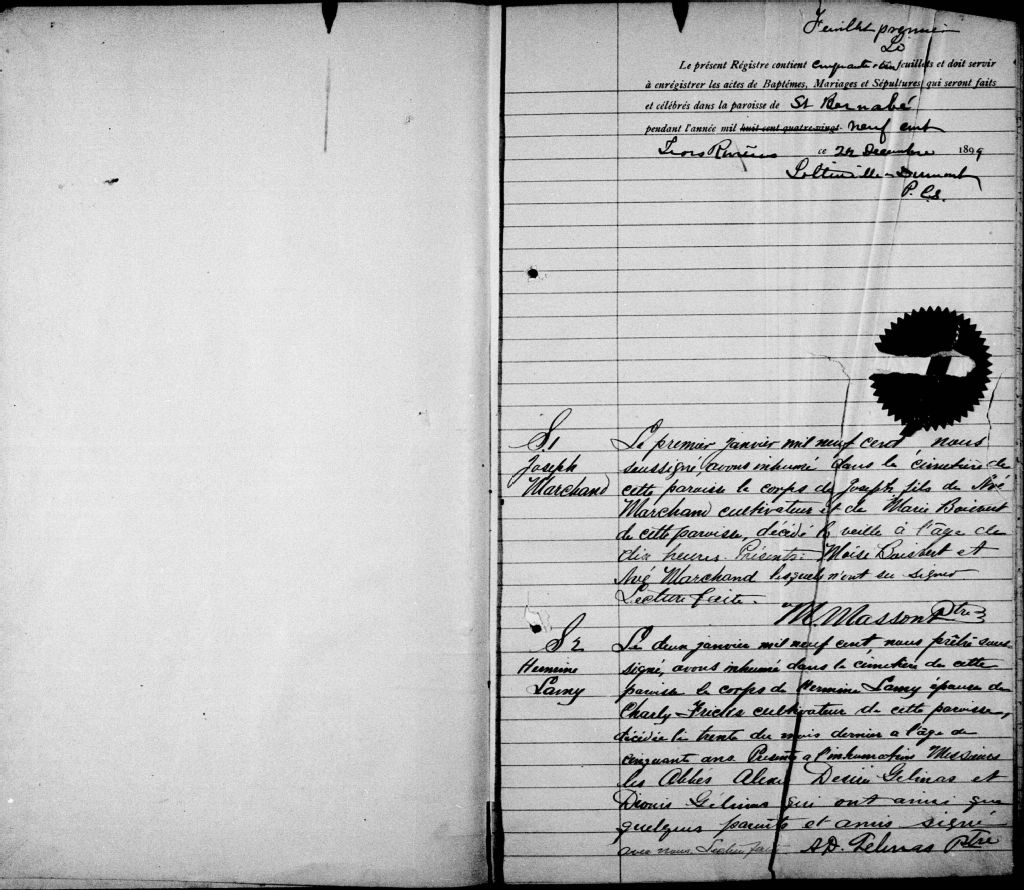 Feuillet premier
Le présent Régistre contient cinquante feuillets et doit servir
à enrégistrer les actes de Baptêmes, Mariages et Sépultures qui seront faits
et célébrés dans la paroisse de St Barnabé
pendant l'année mil huit cent quatre-vingt- neuf cent
Trois Rivières ce 22 Decembre 1899
P. C. S.
S. 1
Joseph
Marchand
Le premier janvier mil neuf cent nous
soussigné, avons inhumé dans le cimetière de
cette paroisse le corps de Joseph fils de Noé
Marchand cultivateur et de Marie Boisvert
de cette paroisse, décédé la veille à l'âge de
dix heures. Présents: Moïse Boisvert et
Noé Marchand lesquels n'ont su signer
Lecture faite.
M. Masson Ptre
S 2
Hermine
Lamy
Le deux janvier mil neuf cent nous prêtre sous-
signé, avons inhumé dans le cimetière de cette
paroisse le corps de Hermine Lamy épouse de
Charly cultivateur de cette paroisse,
décédée le trente du mois dernier a l'âge de
cinquante ans. Présents a l'inhumation Messieurs
les Abbés Désiré Gélinas et
Dionis Gélinas qui ont ainsi que
quelques parents et amis signé
avec nous. Lecture faite A D. Gelinas Ptre